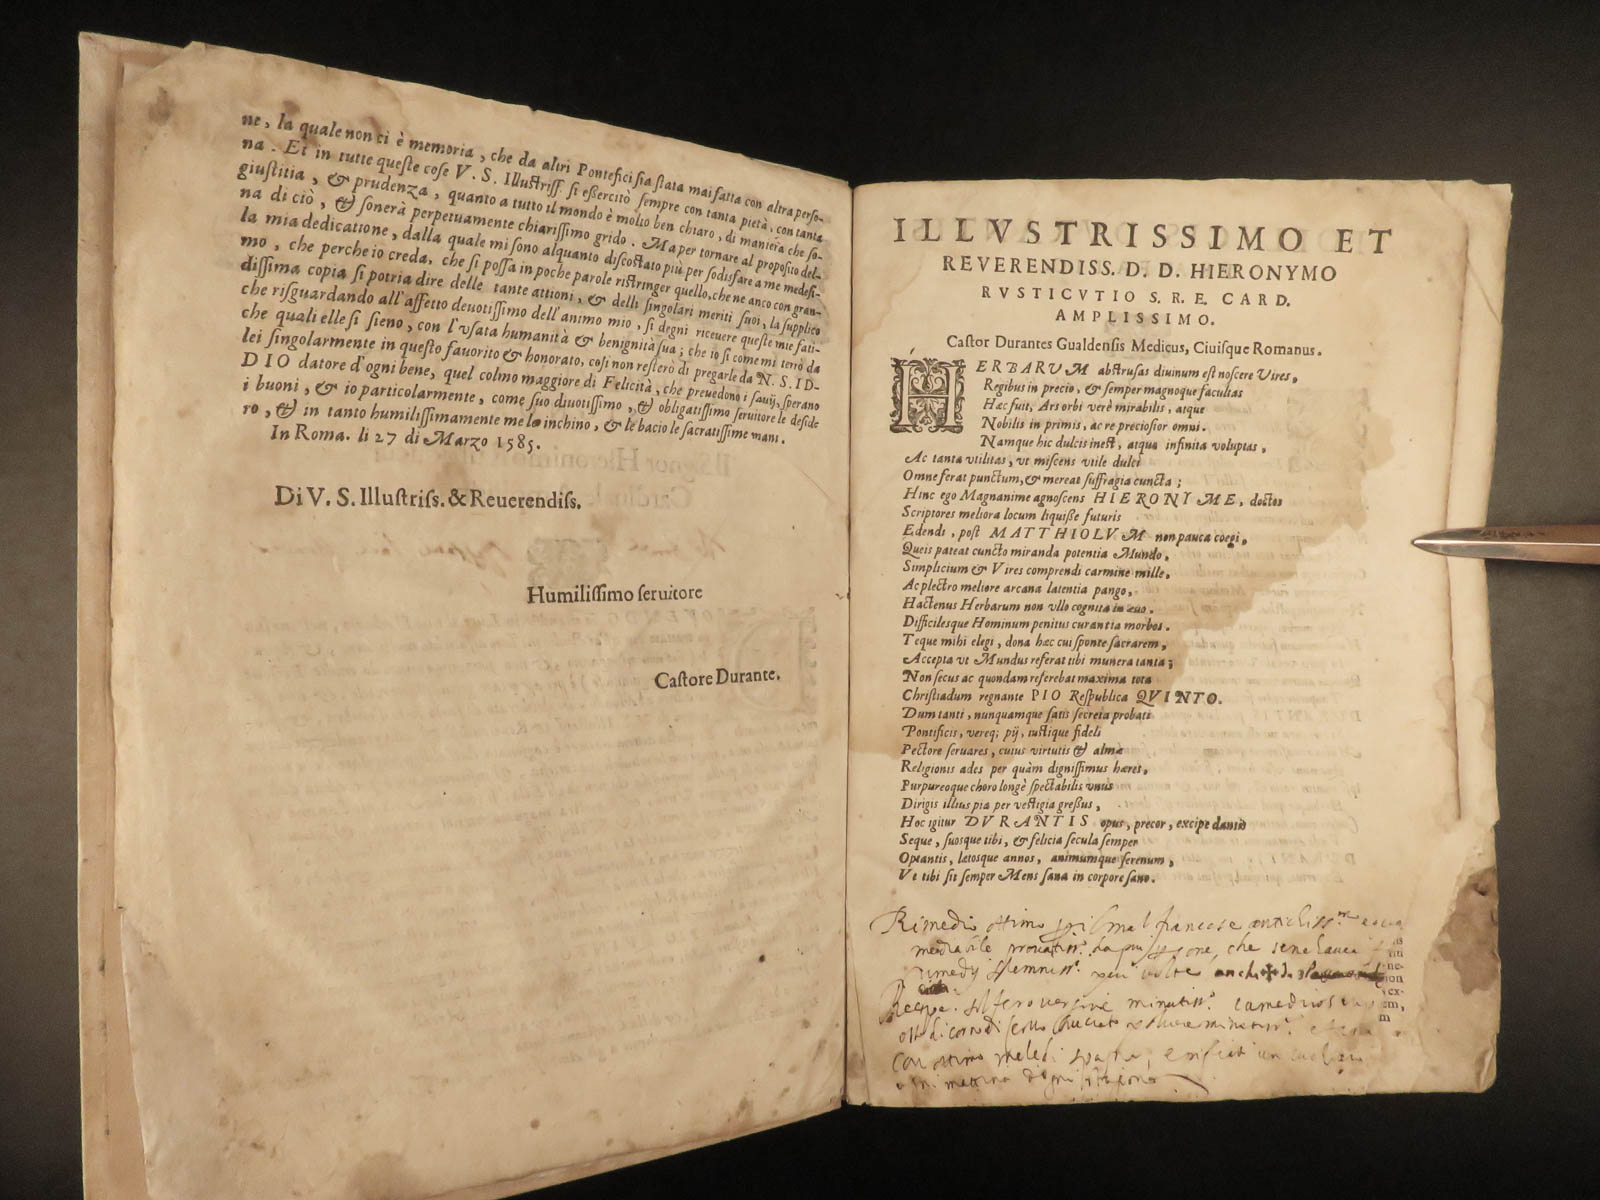 ne, la quale non ci è memoria, che da altri Pontefici sia stata mai fatta con altra perso-
na. Et in tutte queste cose V. S. Illustriss. si essercitò sempre con tanta pietà, con tanta
giustitia, & prudenza, quanto a tutto il mondo è molto ben chiaro, di maniera che so-
na di ciò, & sonerà perpetuamente chiarissimo grido. Ma per tornare al proposito del-
la mia dedicatione, dalla quale mi sono alquanto discostato più per sodisfare a me medesi-
mo, che perche io creda, che si possa in poche parole ristringer quello, che ne anco con gran-
dissima copia si potria dire delle tante attioni, & delli singolari meriti suoi, la supplico
che risguardando all'affetto deuotissimo dell'animo mio, si degni riceuere queste mie fati-
che quali elle si sieno, con l'vsata humanità & benignità sua; che io si come mi terrò da
lei singolarmente in questo fauorito & honorato, così non resterò di pregarle da N. S. ID-
DIO datore d'ogni bene, quel colmo maggiore di Felicità, che preuedono i sauij, sperano
i buoni, & io particolarmente, come suo diuotissimo, & obligatissimo seruitore le deside
ro, & in tanto humilissimamente me le inchino, & le bacio le sacratissime mani.
In Roma. li 27 di Marzo 1585.
Di V. S. Illustriss. & Reuerendiss.
Humilissimo seruitore
Castore Durante.
ILLVSTRISSIMO ET
REVERENDISS. D. D. HIERONYMO
RVSTICVTIO S. R. E. CARD.
AMPLISSIMO.
Castor Durantes Gualdensis Medicus, Ciuisque Romanus.
HERBARVM abstrusas diuinum est noscere Vires,
Regibus in precio, & semper magnoque facultas
Hæc fuit, Ars orbi verè mirabilis, atque
Nobilis in primis, ac re preciosior omni.
Namque hic dulcis inest, atque infinita voluptas,
Ac tanta vtilitas, vt miscens vtile dulci
Omne ferat punctum, & mereat suffragia cuncta;
Hinc ego Magnanime agnoscens HIERONYME, doctos
Scriptores meliora locum liquisse futuris
Edendi, post MATTHIOLVM non pauca coegi,
Queis pateat cuncto miranda potentia Mundo,
Simplicium & Vires comprendi carmine mille,
Ac plectro meliore arcana latentia pango,
Hactenus Herbarum non vllo cognita in æuo.
Difficilesque Hominum penitus curantia morbos.
Teque mihi elegi, dona hæc cui sponte sacrarem,
Accepta vt Mundus referat tibi munera tanta;
Non secus ac quondam referebat maxima tota
Christiadum regnante PIO Respublica QVINTO.
Dum tanti, nunquamque satis secreta probati
Pontificis, vereq; pij, iustique fideli
Pectore seruares, cuius virtutis & almæ
Religionis ades per quàm dignissimus hæres,
Purpureoque choro longè spectabilis vnus
Dirigis illius pia per vestigia gressus,
Hoc igitur DVRANTIS opus, precor, excipe dantis
Seque, suosque tibi, & felicia secula semper
Optantis, letosque annos, animumque serenum,
Vt tibi sit semper Mens sana in corpore sano.
Rimedio ottimo mal francese
che
volte
Recipe
con ottimo mele di spagna
mattina